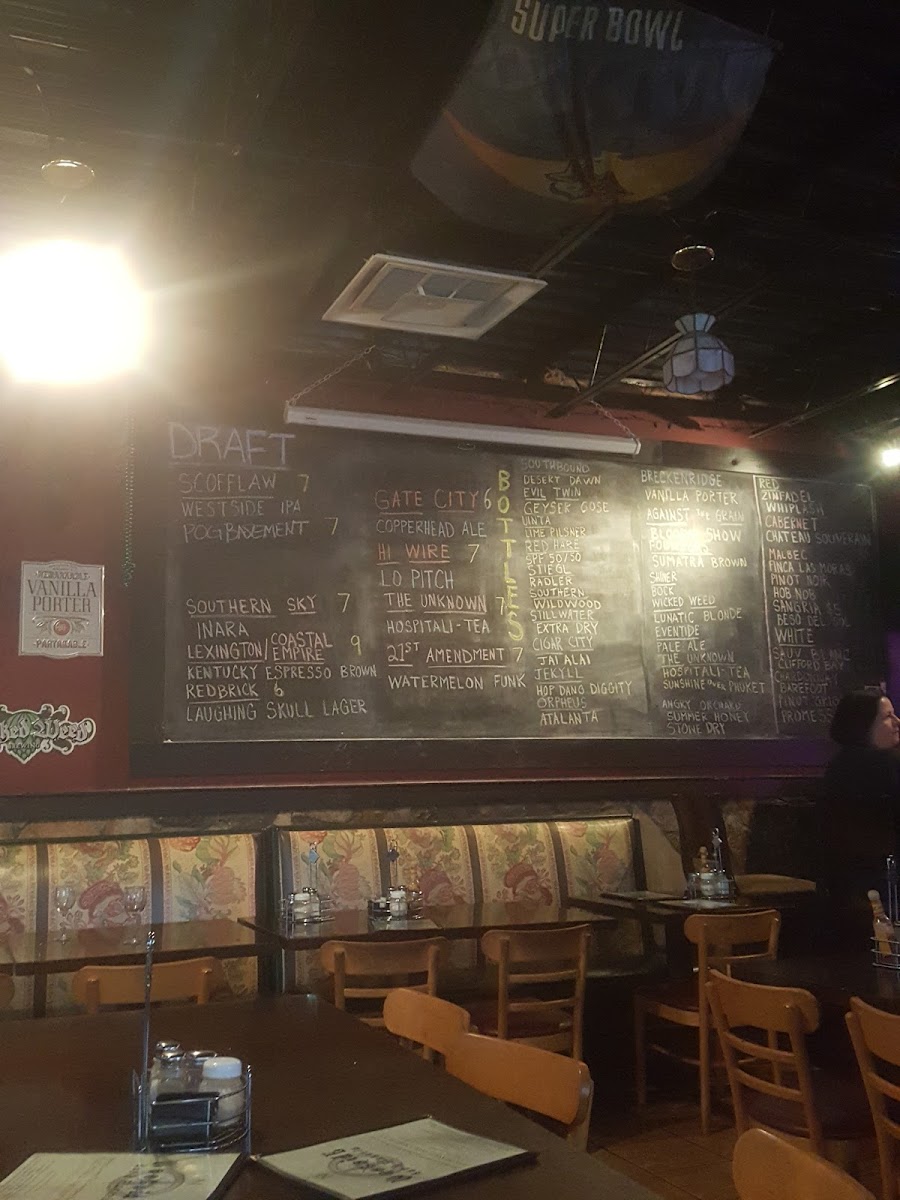 SUPER BOWL
DRAFT
SCOFFLAW 7
WESTSIDE IPA
POG BASEMENT 7
SOUTHERN SKY 7
INARA
LEXINGTON/COASTAL EMPIRE 9
KENTUCKY ESPRESSO BROWN
REDBRICK 6
LAUGHING SKULL LAGER
GATE CITY 6
COPPERHEAD ALE
HI WIRE 7
LO PITCH
THE UNKNOWN 7
HOSPITALI-TEA
21ST AMENDMENT 7
WATERMELON FUNK
BOTTLES
SOUTHBOUND
DESERT DAWN
EVIL TWIN
GEYSER GOSE
UINTA
LIME PILSNER
RED HARE
SPF 50/50
STIEGL
RADLER
SOUTHERN
WILDWOOD
STILLWATER
EXTRA DRY
CIGAR CITY
JAI ALAI
JEKYLL
HOP DANG DIGGITY
ORPHEUS
ATALANTA
BRECKENRIDGE
VANILLA PORTER
AGAINST THE GRAIN
SHOW
SUMATRA BROWN
SHINER
BOCK
WICKED WEED
LUNATIC BLONDE
EVENTIDE
PALE ALE
THE UNKNOWN
HOSPITALI-TEA
SUNSHINE PHUKET
ANGRY ORCHARD
SUMMER HONEY
STONE DRY
RED
ZINFADEL
WHIPLASH
CABERNET
CHATEAU SOUVERAIN
MALBEC
FINCA LAS MORAS
PINOT NOIR
HOB NOB
SANGRIA $5
BESO DEL SOL
WHITE
SAUV BLANC
CLIFFORD BAY
CHARDONNAY
BAREFOOT
PINOT GRIGIO
VANILLA
PORTER
PARTAKABLE
ked Weed